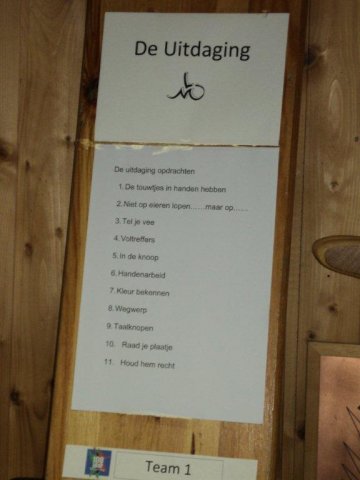 De Uitdaging
De uitdaging opdrachten
1. De touwtjes in handen hebben
2. Niet op eieren lopen……maar op……
3. Tel je vee
4. Voltreffers
5. In de knoop
6. Handenarbeid
7. Kleur bekennen
8. Wegwerp
9. Taalknopen
10. Raad je plaatje
11. Houd hem recht
Team 1